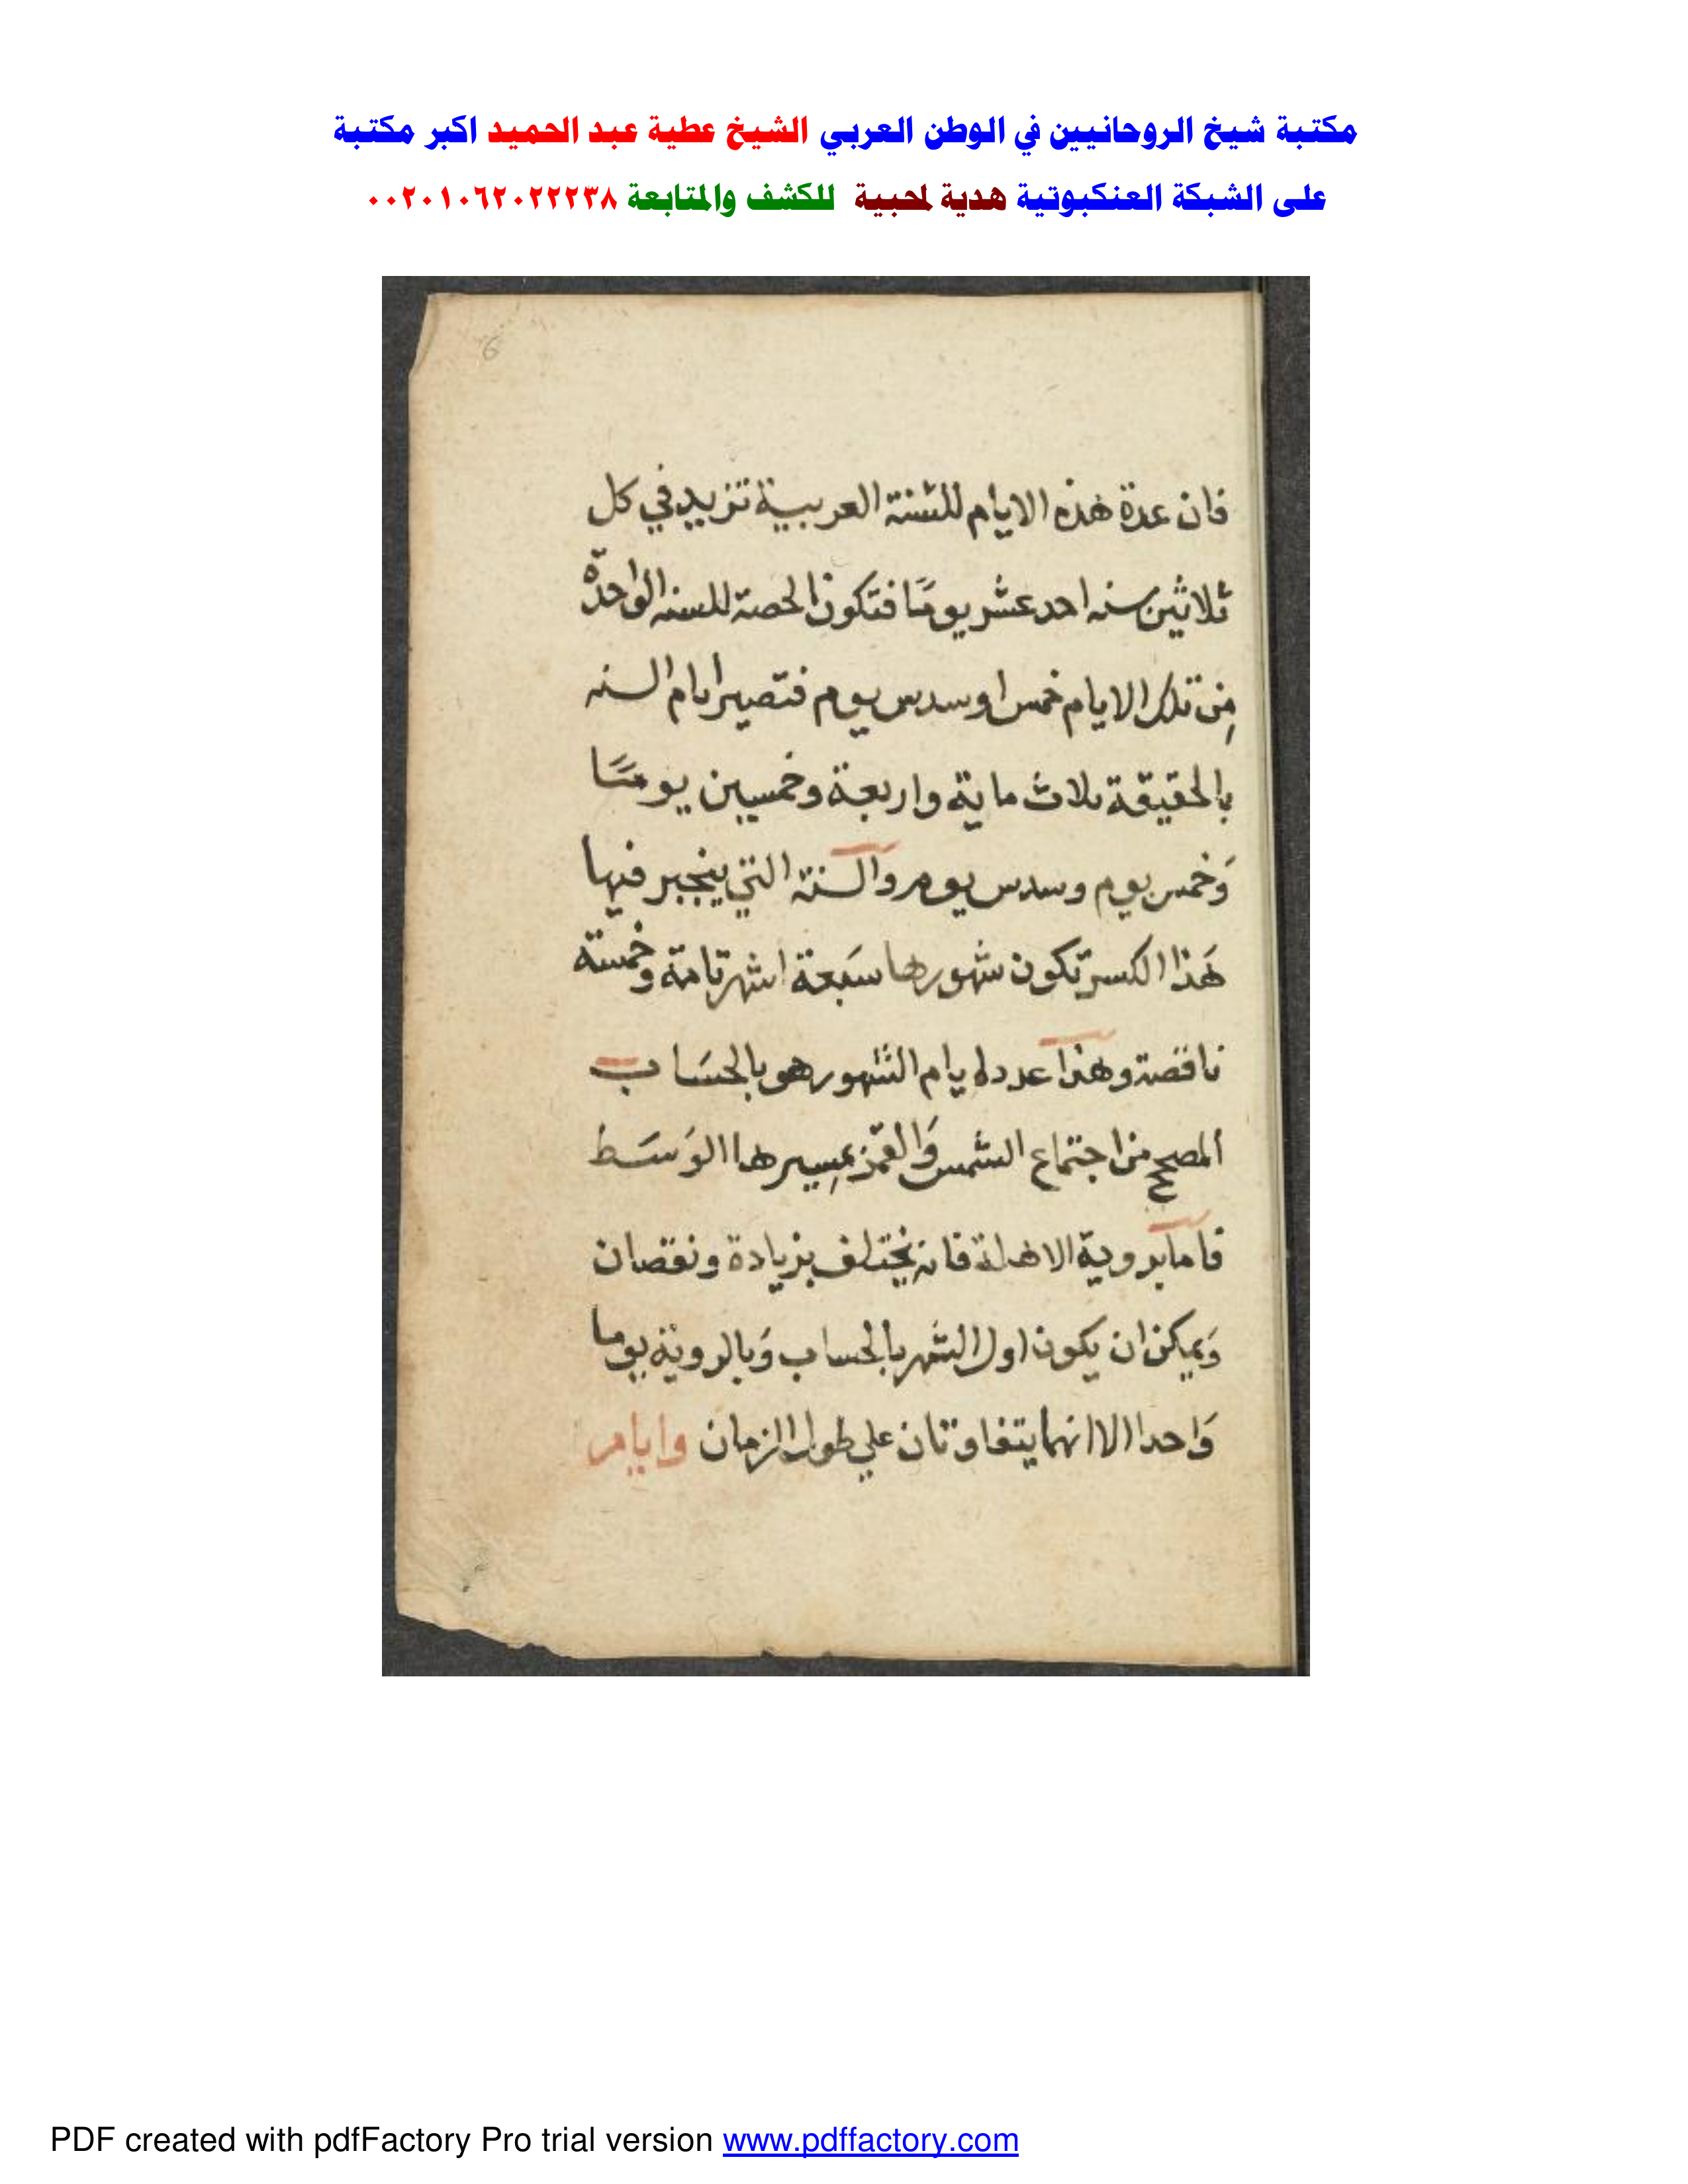 مكتبة شيخ الروحانيين في الوطن العربي الشيخ عطية عبد الحميد اكبر مكتبة
على الشبكة العنكبوتية هدية لمحبية للكشف والمتابعة ٠٠٢٠١٠٦٢٠٢٢٢٣٨
6
فان عدة هذه الايام للسنة العربية تزيد في كل
ثلاثين سنه احد عشر يومًا فتكون الحصة للسنه الواحدة
مِن تلك الايام خمس او سدس يوم فتصير ايام السنه
بالحقيقة ثلاث ماية واربعة وخمسين يومًا
وَخمس يوم وسدس يوم والسنة التي ينجبر فيها
هَذا الكسر تكون شهورها سَبعة اشهر تامة وخمسة
ناقصة وهذا عدد ايام الشهور هو بالحسَاب
المصحح من اجتماع الشمس وَالقمر بمسِيرهما الوَسَط
فاما بروية الاهلة فانه يختلف بزيادة ونقصان
وَيمكن ان يكون اول الشهر بالحساب وَبالروية يوما
وَاحدا الا انهما يتفاوتان علي طول الزمان وايام
PDF created with pdfFactory Pro trial version www.pdffactory.com